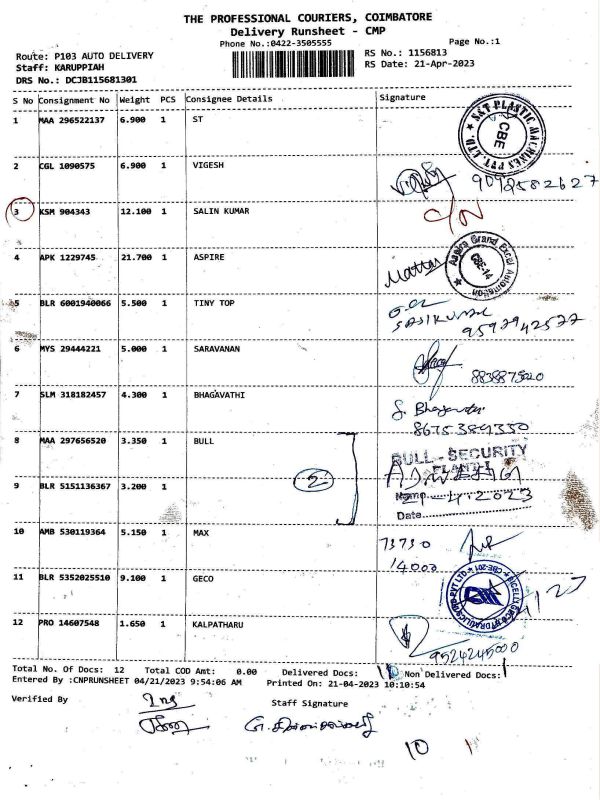 THE PROFESSIONAL COURIERS, COIMBATORE
Delivery Runsheet - CMP
Phone No.:0422-3505555 Page No.:1
Route: P103 AUTO DELIVERY RS No.: 1156813
Staff: KARUPPIAH RS Date: 21-Apr-2023
DRS No.: DCJB115681301
S No Consignment No Weight PCS Consignee Details Signature
1 MAA 296522137 6.900 1 ST
S&T PLASTIC MACHINES PVT. LTD. CBE
2 CGL 1090575 6.900 1 VIGESH
9092582627
3 KSM 904343 12.100 1 SALIN KUMAR C/N
4 APK 1229745 21.700 1 ASPIRE
CBE-14
5 BLR 6001940066 5.500 1 TINY TOP
SASIKUMAR
6 MYS 29444221 5.000 1 SARAVANAN
7 SLM 318182457 4.300 1 BHAGAVATHI
8 MAA 297656520 3.350 1 BULL
BULL - SECURITY
2
9 BLR 5151136367 3.200 1
Date
10 AMB 530119364 5.150 1 MAX
73730
14000
11 BLR 5352025510 9.100 1 GECO
12 PRO 14607548 1.650 1 KALPATHARU
9524245000
Total No. Of Docs: 12 Total COD Amt: 0.00 Delivered Docs: Non Delivered Docs: 1
Entered By :CNPRUNSHEET 04/21/2023 9:54:06 AM Printed On: 21-04-2023 10:10:54
Verified By Staff Signature
10 1